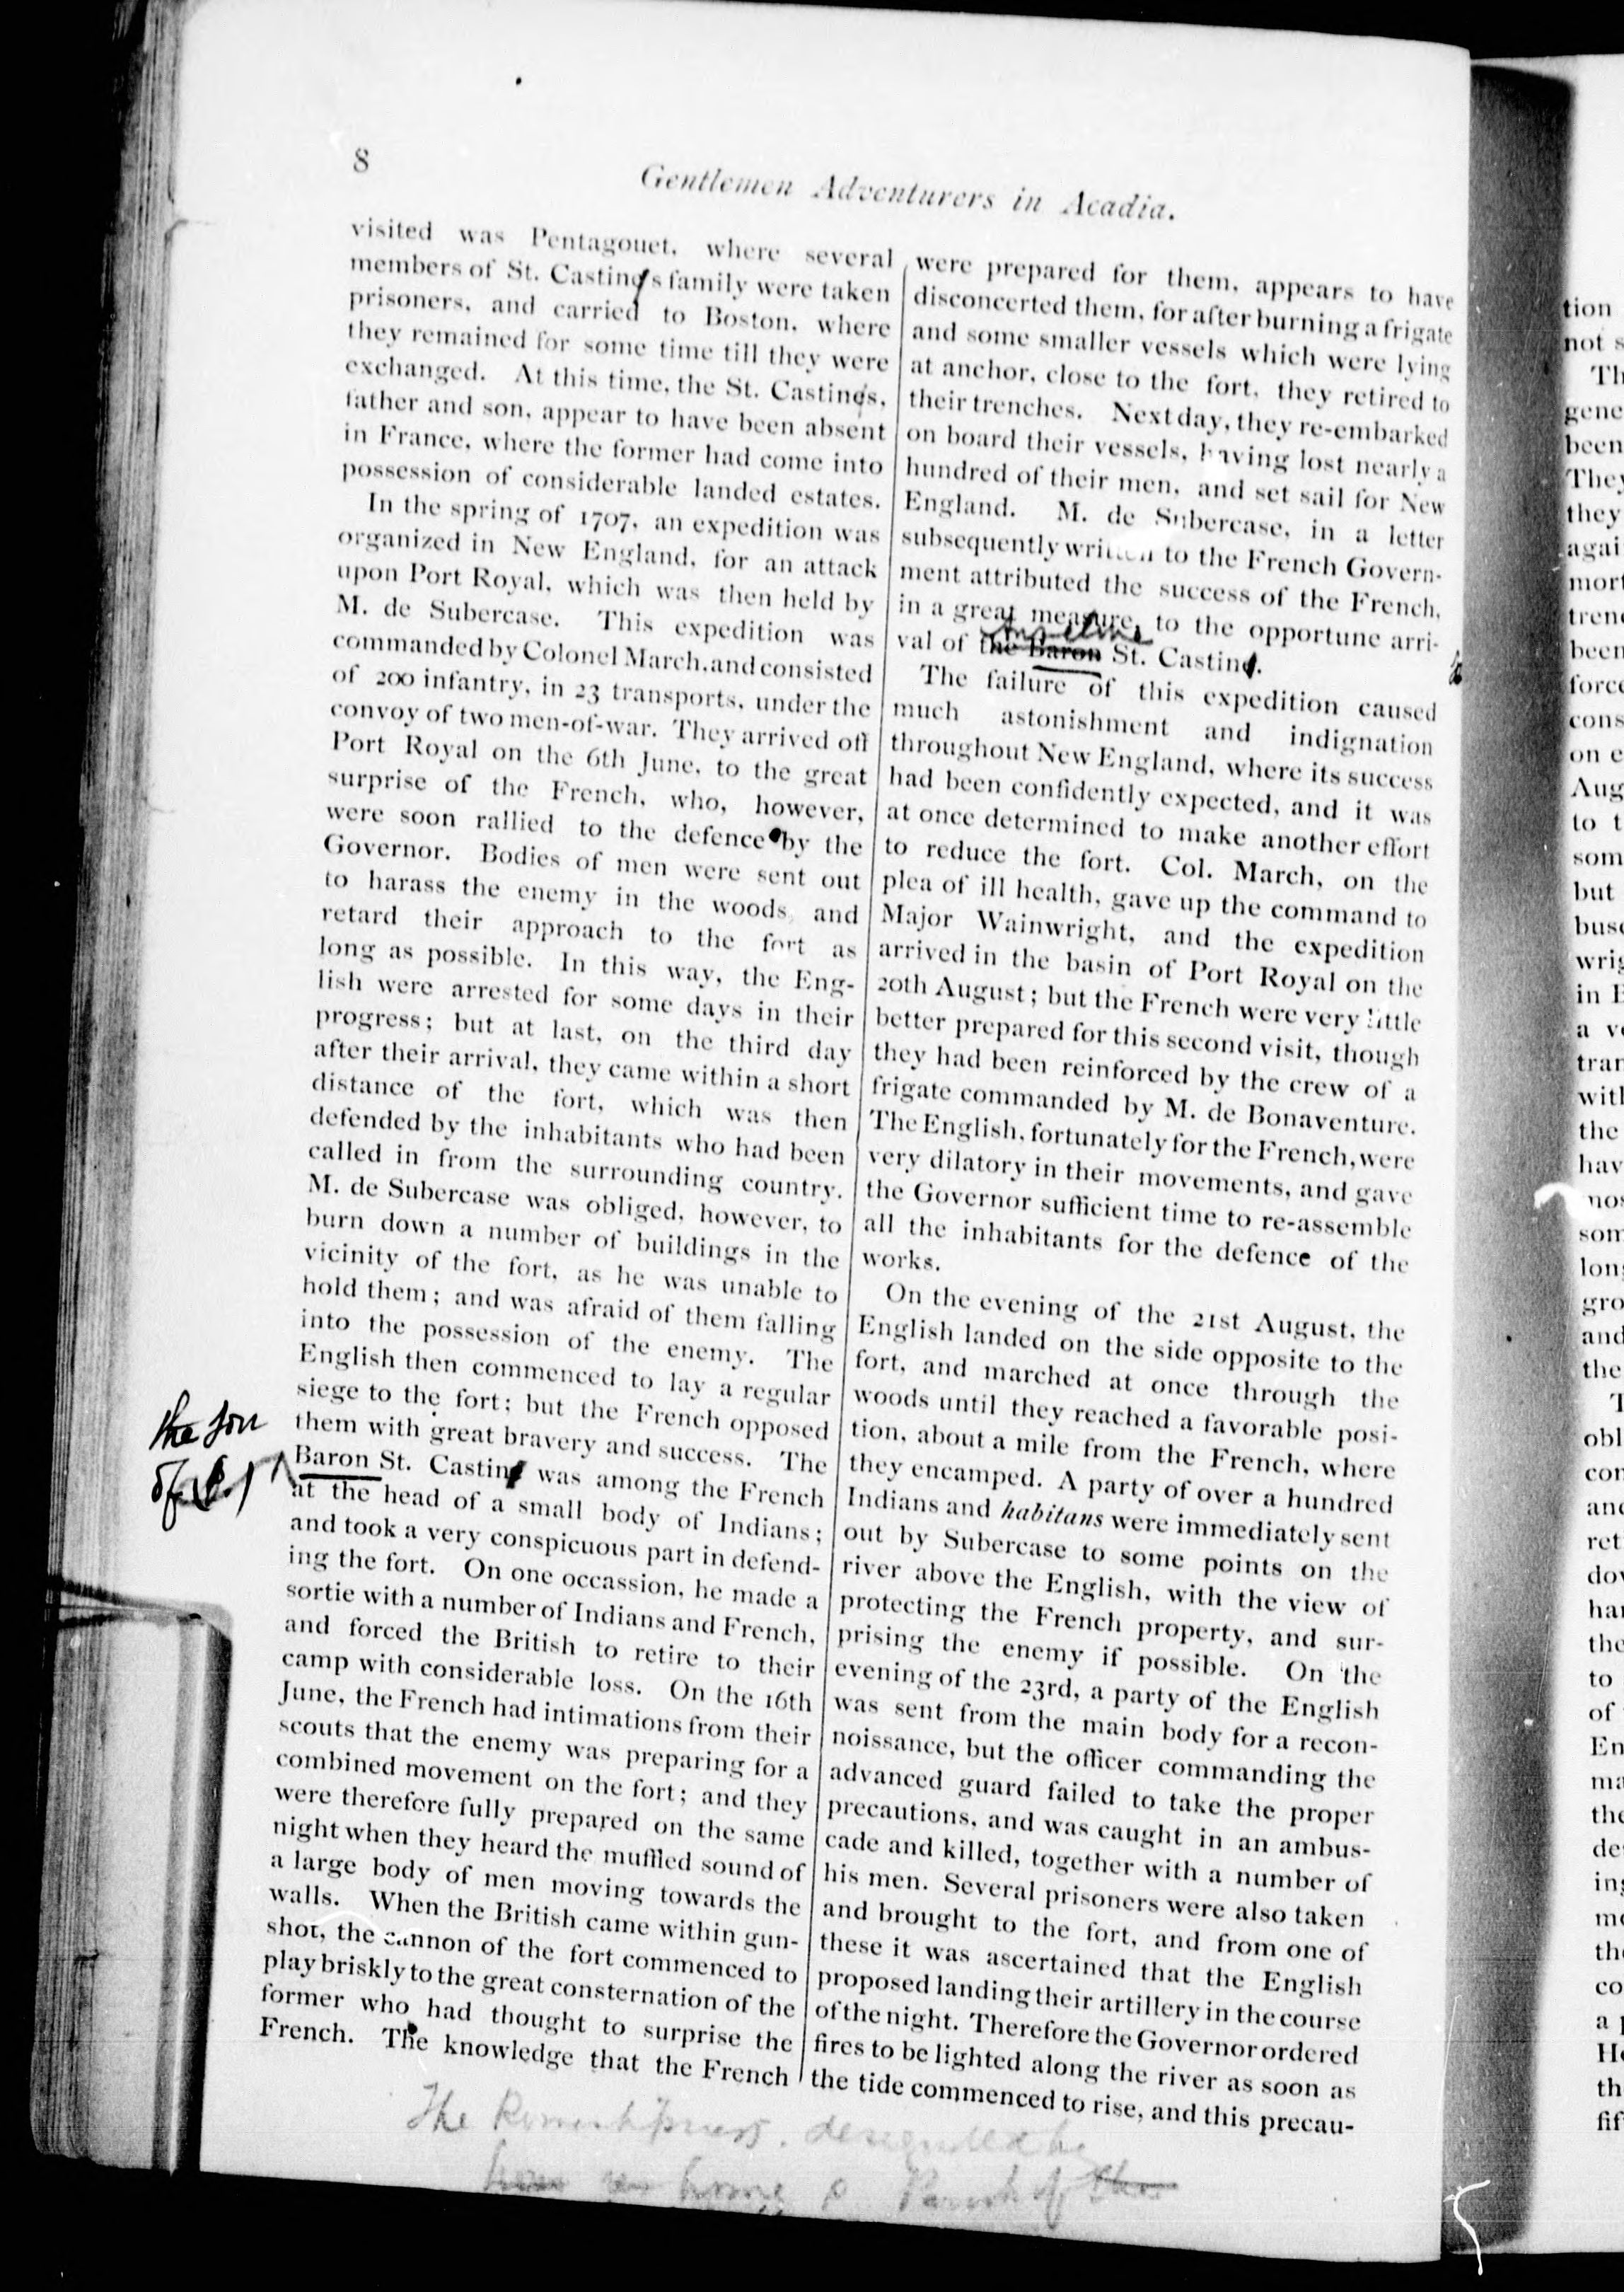 8
Gentlemen Adventurers in Acadia.
visited was Pentagouet, where several
members of St. Casting's family were taken
prisoners, and carried to Boston, where
they remained for some time till they were
exchanged. At this time, the St. Castings,
father and son, appear to have been absent
in France, where the former had come into
possession of considerable landed estates.
In the spring of 1707, an expedition was
organized in New England, for an attack
upon Port Royal, which was then held by
M. de Subercase. This expedition was
commanded by Colonel March, and consisted
of 200 infantry, in 23 transports, under the
convoy of two men-of-war. They arrived off
Port Royal on the 6th June, to the great
surprise of the French, who, however,
were soon rallied to the defence by the
Governor. Bodies of men were sent out
to harass the enemy in the woods, and
retard their approach to the fort as
long as possible. In this way, the Eng-
lish were arrested for some days in their
progress; but at last, on the third day
after their arrival, they came within a short
distance of the fort, which was then
defended by the inhabitants who had been
called in from the surrounding country.
M. de Subercase was obliged, however, to
burn down a number of buildings in the
vicinity of the fort, as he was unable to
hold them; and was afraid of them falling
into the possession of the enemy. The
English then commenced to lay a regular
siege to the fort; but the French opposed
them with great bravery and success. The
the son
of
Baron St. Casting was among the French
at the head of a small body of Indians;
and took a very conspicuous part in defend-
ing the fort. On one occassion, he made a
sortie with a number of Indians and French,
and forced the British to retire to their
camp with considerable loss. On the 16th
June, the French had intimations from their
scouts that the enemy was preparing for a
combined movement on the fort; and they
were therefore fully prepared on the same
night when they heard the muffled sound of
a large body of men moving towards the
walls. When the British came within gun-
shot, the cannon of the fort commenced to
play briskly to the great consternation of the
former who had thought to surprise the
French. The knowledge that the French
were prepared for them, appears to have
disconcerted them, for after burning a frigate
and some smaller vessels which were lying
at anchor, close to the fort, they retired to
their trenches. Next day, they re-embarked
on board their vessels, having lost nearly a
hundred of their men, and set sail for New
England. M. de Subercase, in a letter
subsequently written to the French Govern-
ment attributed the success of the French,
in a great measure, to the opportune arri-
val of the Baron St. Casting.
The failure of this expedition caused
much astonishment and indignation
throughout New England, where its success
had been confidently expected, and it was
at once determined to make another effort
to reduce the fort. Col. March, on the
plea of ill health, gave up the command to
Major Wainwright, and the expedition
arrived in the basin of Port Royal on the
20th August; but the French were very little
better prepared for this second visit, though
they had been reinforced by the crew of a
frigate commanded by M. de Bonaventure.
The English, fortunately for the French, were
very dilatory in their movements, and gave
the Governor sufficient time to re-assemble
all the inhabitants for the defence of the
works.
On the evening of the 21st August, the
English landed on the side opposite to the
fort, and marched at once through the
woods until they reached a favorable posi-
tion, about a mile from the French, where
they encamped. A party of over a hundred
Indians and habitans were immediately sent
out by Subercase to some points on the
river above the English, with the view of
protecting the French property, and sur-
prising the enemy if possible. On the
evening of the 23rd, a party of the English
was sent from the main body for a recon-
noissance, but the officer commanding the
advanced guard failed to take the proper
precautions, and was caught in an ambus-
cade and killed, together with a number of
his men. Several prisoners were also taken
and brought to the fort, and from one of
these it was ascertained that the English
proposed landing their artillery in the course
of the night. Therefore the Governor ordered
fires to be lighted along the river as soon as
the tide commenced to rise, and this precau-
The